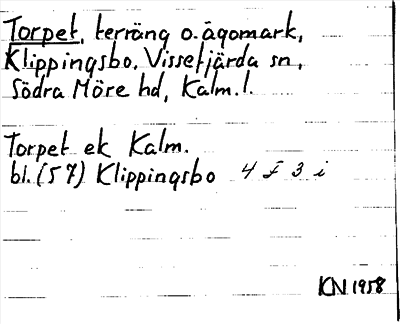 Torpet, terräng o. ägomark,
Klippingsbo, Vissefjärda sn,
Södra Möre hd, Kalm. l.
Torpet ek Kalm.
bl. (57) Klippingsbo 4 F 3 i
KN 1958